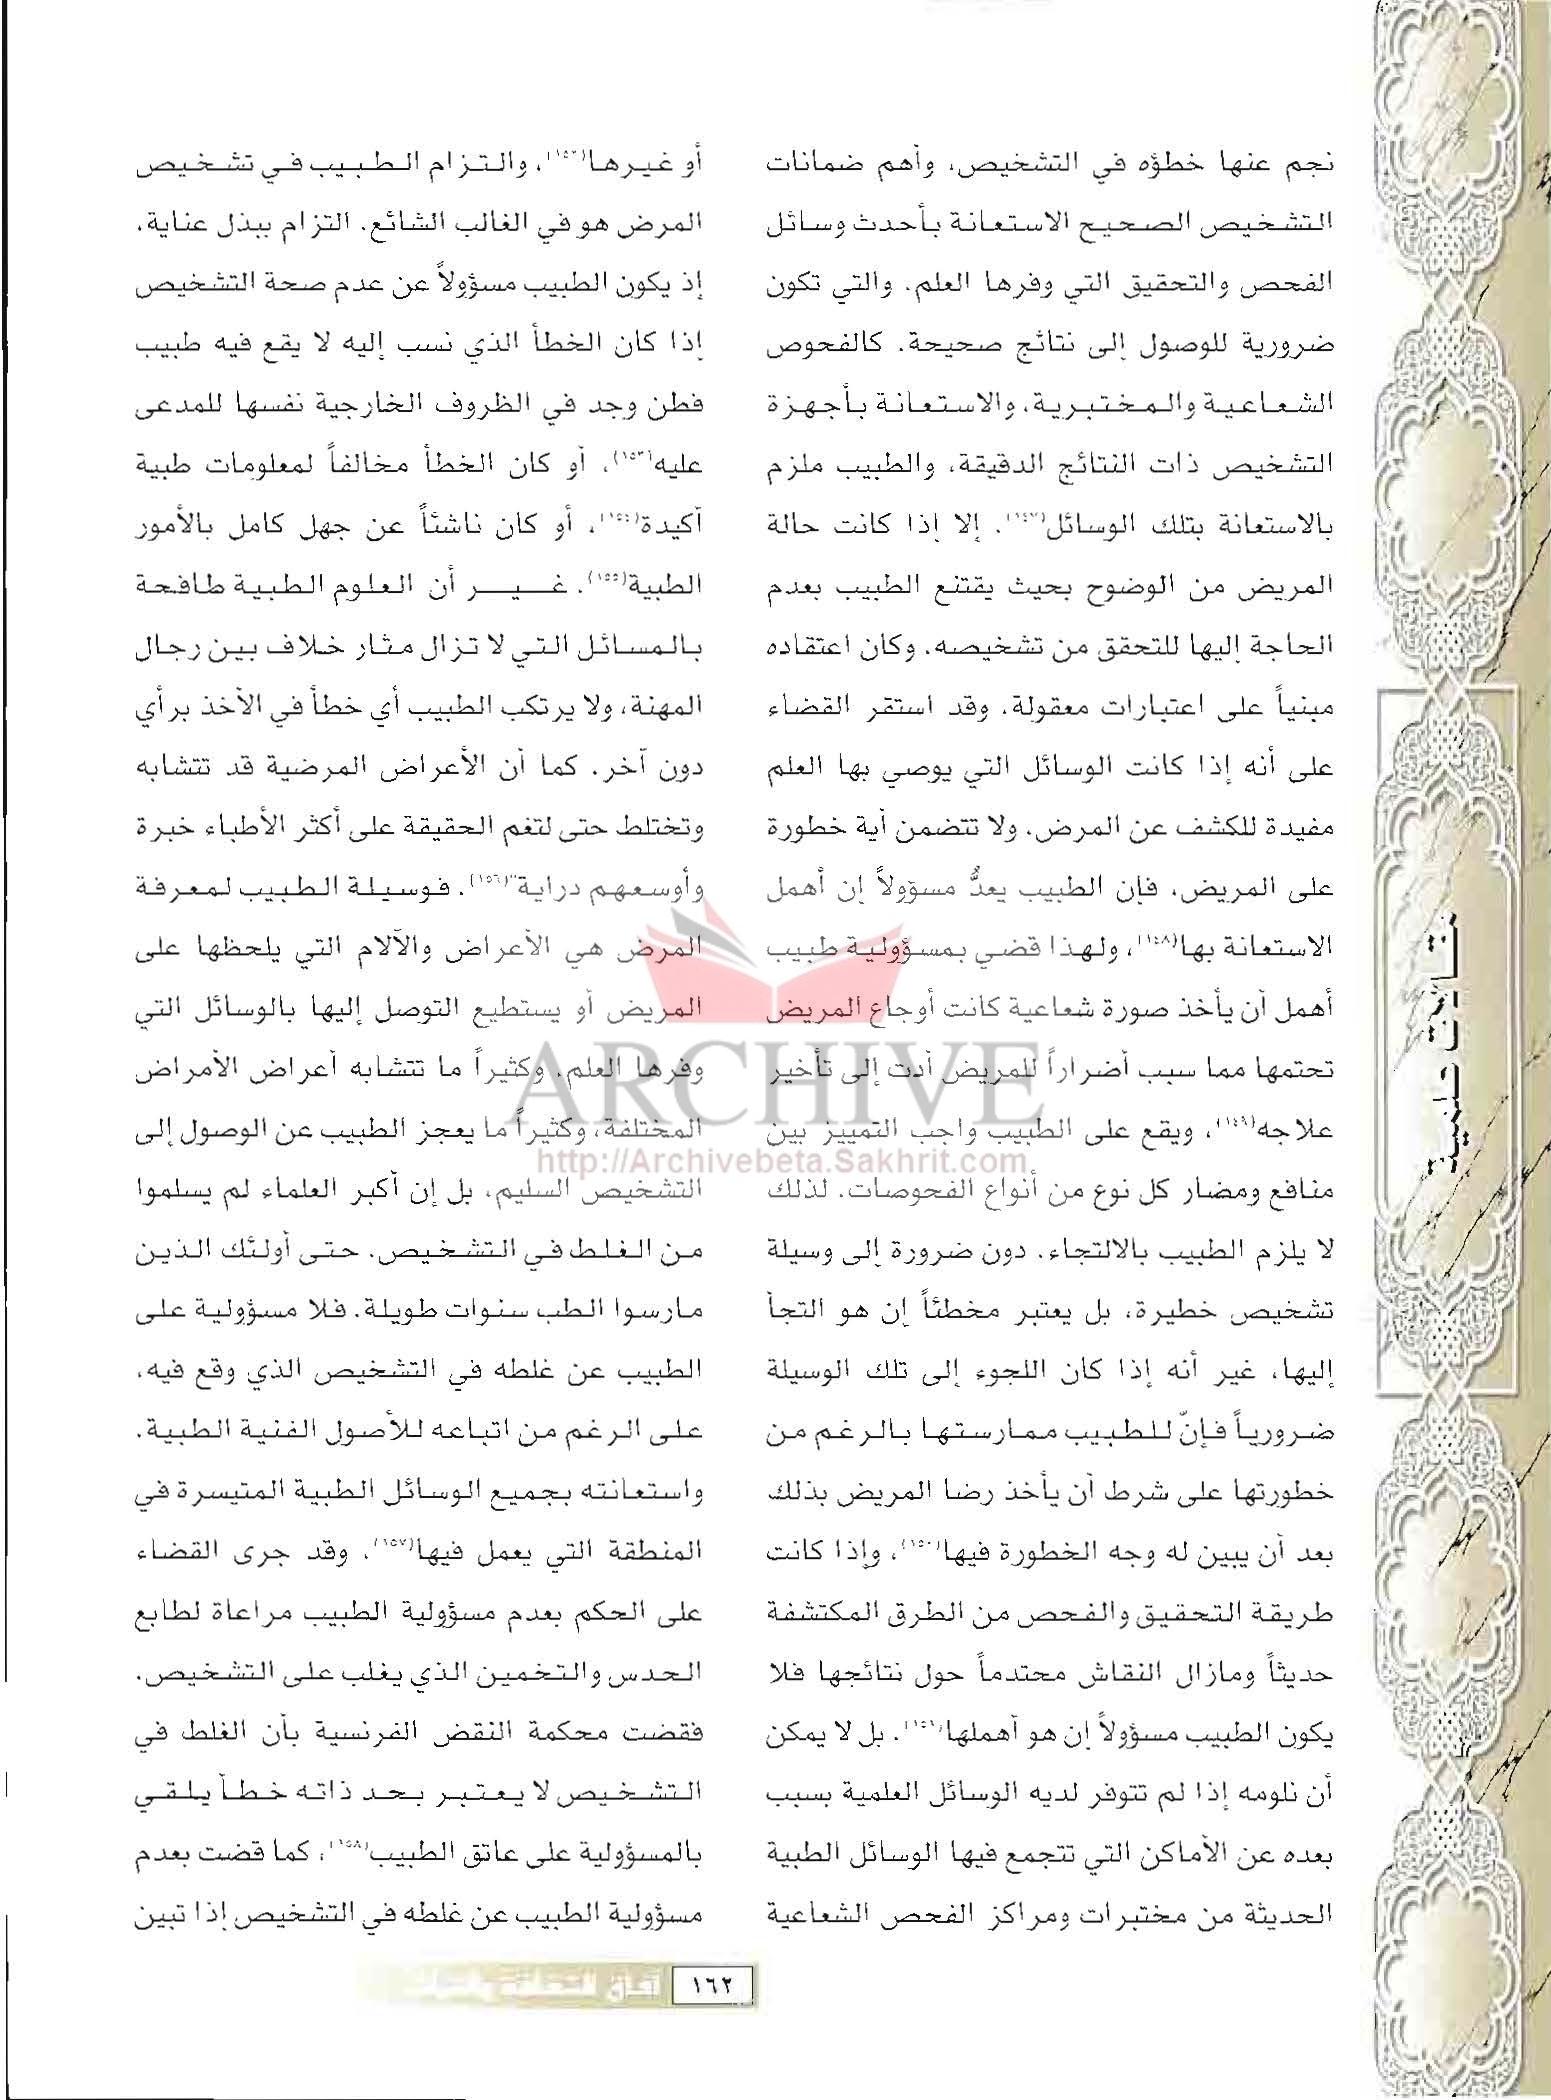 نجم عنها خطؤه في التشخيص، وأهم ضمانات
التشخيص الصحيح الاستعانة بأحدث وسائل
الفحص والتحقيق التي وفرها العلم. والتي تكون
ضرورية للوصول إلى نتائج صحيحة. كالفحوص
الشعاعية والمختبرية، والاستعانة بأجهزة
التشخيص ذات النتائج الدقيقة، والطبيب ملزم
بالاستعانة بتلك الوسائل(١٤٧). إلا إذا كانت حالة
المريض من الوضوح بحيث يقتنع الطبيب بعدم
الحاجة إليها للتحقق من تشخيصه. وكان اعتقاده
مبنياً على اعتبارات معقولة. وقد استقر القضاء
على أنه إذا كانت الوسائل التي يوصي بها العلم
مفيدة للكشف عن المرض. ولا تتضمن أية خطورة
على المريض، فإن الطبيب يعدُّ مسؤولاً إن أهمل
الاستعانة بها(١٤٨)، ولهذا قضي بمسؤولية طبيب
أهمل أن يأخذ صورة شعاعية كانت أوجاع المريض
تحتمها مما سبب أضراراً للمريض أدت إلى تأخير
علاجه(١٤٩)، ويقع على الطبيب واجب التمييز بين
منافع ومضار كل نوع من أنواع الفحوصات. لذلك
لا يلزم الطبيب بالالتجاء. دون ضرورة إلى وسيلة
تشخيص خطيرة، بل يعتبر مخطئاً إن هو التجأ
إليها، غير أنه إذا كان اللجوء إلى تلك الوسيلة
ضرورياً فإنّ للطبيب ممارستها بالرغم من
خطورتها على شرط أن يأخذ رضا المريض بذلك
بعد أن يبين له وجه الخطورة فيها(١٥٠)، وإذا كانت
طريقة التحقيق والفحص من الطرق المكتشفة
حديثاً ومازال النقاش محتدماً حول نتائجها فلا
يكون الطبيب مسؤولاً إن هو أهملها(١٥١). بل لا يمكن
أن نلومه إذا لم تتوفر لديه الوسائل العلمية بسبب
بعده عن الأماكن التي تتجمع فيها الوسائل الطبية
الحديثة من مختبرات ومراكز الفحص الشعاعية
أو غيرها(١٥٢)، والتزام الطبيب في تشخيص
المرض هو في الغالب الشائع. التزام ببذل عناية،
إذ يكون الطبيب مسؤولاً عن عدم صحة التشخيص
إذا كان الخطأ الذي نسب إليه لا يقع فيه طبيب
فطن وجد في الظروف الخارجية نفسها للمدعى
عليه(١٥٣)، أو كان الخطأ مخالفاً لمعلومات طبية
أكيدة(١٥٤)، أو كان ناشئاً عن جهل كامل بالأمور
الطبية(١٥٥). غير أن العلوم الطبية طافحة
بالمسائل التي لا تزال مثار خلاف بين رجال
المهنة، ولا يرتكب الطبيب أي خطأ في الأخذ برأي
دون آخر. كما أن الأعراض المرضية قد تتشابه
وتختلط حتى لتغم الحقيقة على أكثر الأطباء خبرة
وأوسعهم دراية"(١٥٦). فوسيلة الطبيب لمعرفة
المرض هي الأعراض والآلام التي يلحظها على
المريض أو يستطيع التوصل إليها بالوسائل التي
وفرها العلم. وكثيراً ما تتشابه أعراض الأمراض
المختلفة، وكثيراً ما يعجز الطبيب عن الوصول إلى
التشخيص السليم، بل إن أكبر العلماء لم يسلموا
من الغلط في التشخيص. حتى أولئك الذين
مارسوا الطب سنوات طويلة. فلا مسؤولية على
الطبيب عن غلطه في التشخيص الذي وقع فيه،
على الرغم من اتباعه للأصول الفنية الطبية.
واستعانته بجميع الوسائل الطبية المتيسرة في
المنطقة التي يعمل فيها(١٥٧)، وقد جرى القضاء
على الحكم بعدم مسؤولية الطبيب مراعاة لطابع
الحدس والتخمين الذي يغلب على التشخيص.
فقضت محكمة النقض الفرنسية بأن الغلط في
التشخيص لا يعتبر بحد ذاته خطأ يلقي
بالمسؤولية على عاتق الطبيب(١٥٨)، كما قضت بعدم
مسؤولية الطبيب عن غلطه في التشخيص إذا تبين
ARCHIVE
http://Archivebeta.Sakhrit.com
مقالات علمية
آفاق الثقافة والتراث ١٦٢